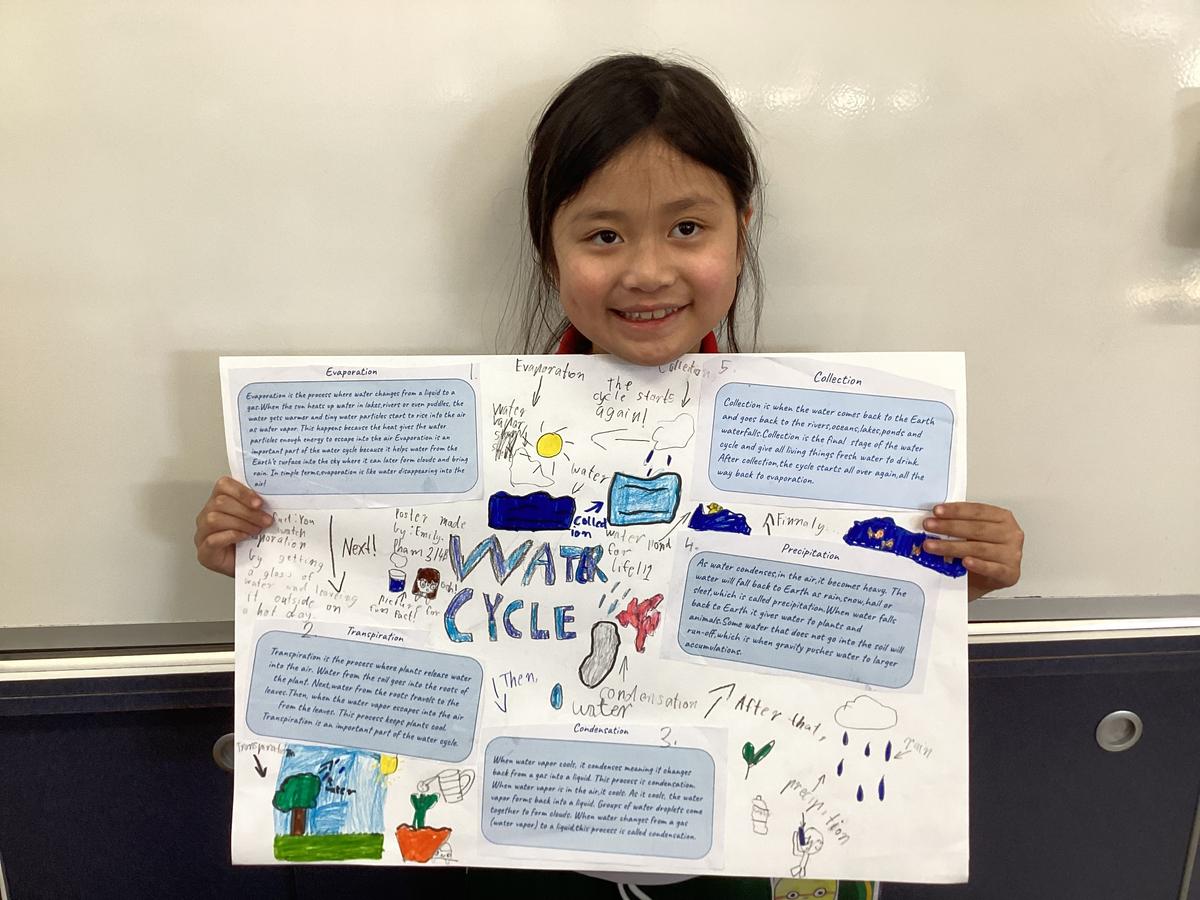 Evaporation
1.
Evaporation is the process where water changes from a liquid to a
gas.When the sun heats up water in lakes,rivers or even puddles, the
water gets warmer and tiny water particles start to rise into the air
as water vapor. This happens because the heat gives the water
particles enough energy to escape into the air Evaporation is an
important part of the water cycle because it helps water from the
Earth's surface into the sky where it can later form clouds and bring
rain. In simple terms,evaporation is like water disappearing into the
air!
Evaporation
The
cycle starts
again!
Collection
5.
Water
vapor
water
Collect
ion
water
for
life!!
Pond
Collection
Collection is when the water comes back to the Earth
and goes back to the rivers,oceans,lakes,ponds and
waterfalls.Collection is the final stage of the water
cycle and give all living things fresh water to drink.
After collection,the cycle starts all over again,all the
way back to evaporation.
Finnaly..
You
watch
by getting
a glass of
water and leaving
it outside on
a hot day.
Next!
Poster made
by:Emily.
Picture for
fun Fact!
WATER
CYCLE
4.
Precipitation
As water condenses,in the air,it becomes heavy. The
water will fall back to Earth as rain,snow,hail or
sleet,which is called precipitation.When water falls
back to Earth it gives water to plants and
animals.Some water that does not go into the soil will
run-off,which is when gravity pushes water to larger
accumulations.
2
Transpiration
Transpiration is the process where plants release water
into the air. Water from the soil goes into the roots of
the plant. Next,water from the roots travels to the
leaves.Then, when the water vapor escapes into the air
from the leaves. This process keeps plants cool.
Transpiration is an important part of the water cycle.
Then,
condensation
water
After that,
rain
precipition
Transpiration
water
Condensation
3.
When water vapor cools, it condenses meaning it changes
back from a gas into a liquid. This process is condensation.
When water vapor is in the air,it cools. As it cools, the water
vapor forms back into a liquid. Groups of water droplets come
together to form clouds. When water changes from a gas
(water vapor) to a liquid,this process is called condensation.